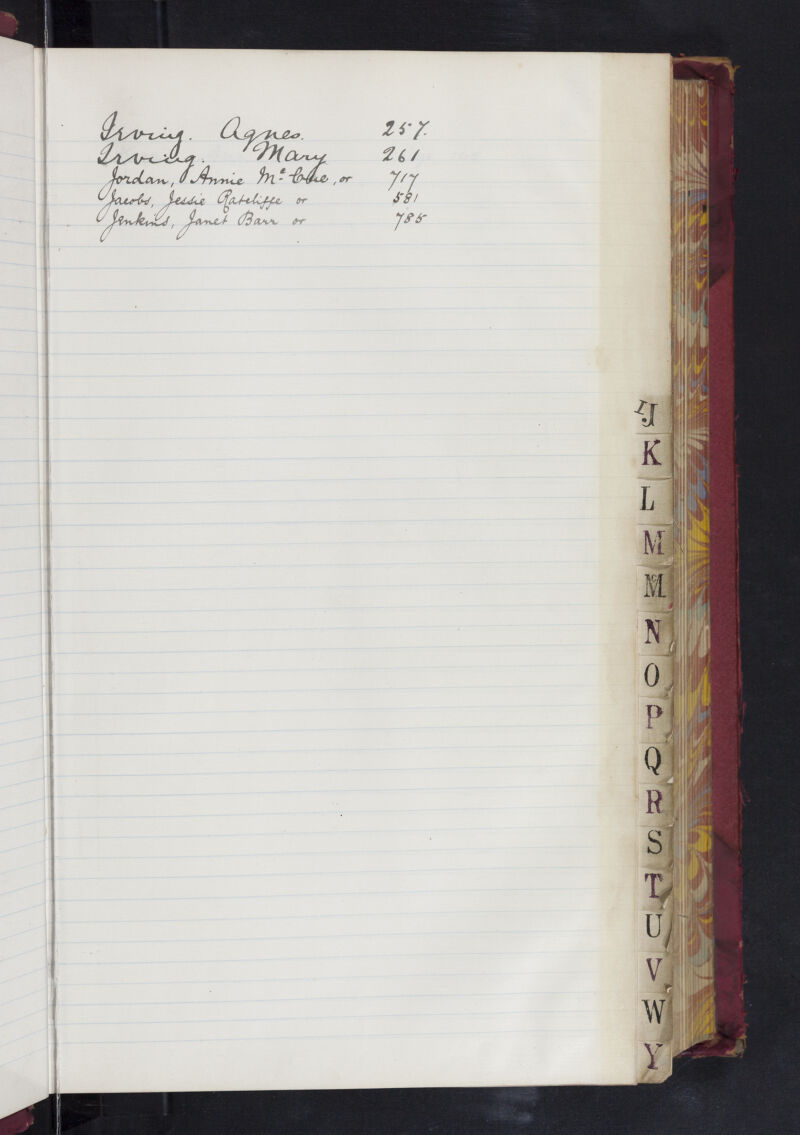 Irving. Agnes. 257.
Irving. Mary 261
Jordan, Annie Mc Cue, or 717
Jacobs, Jessie Ratcliffe or 581
Jenkins, Janet Barr or 785
IJ
K
L
M
Mc
N
O
P
Q
R
S
T
U
V
W
Y